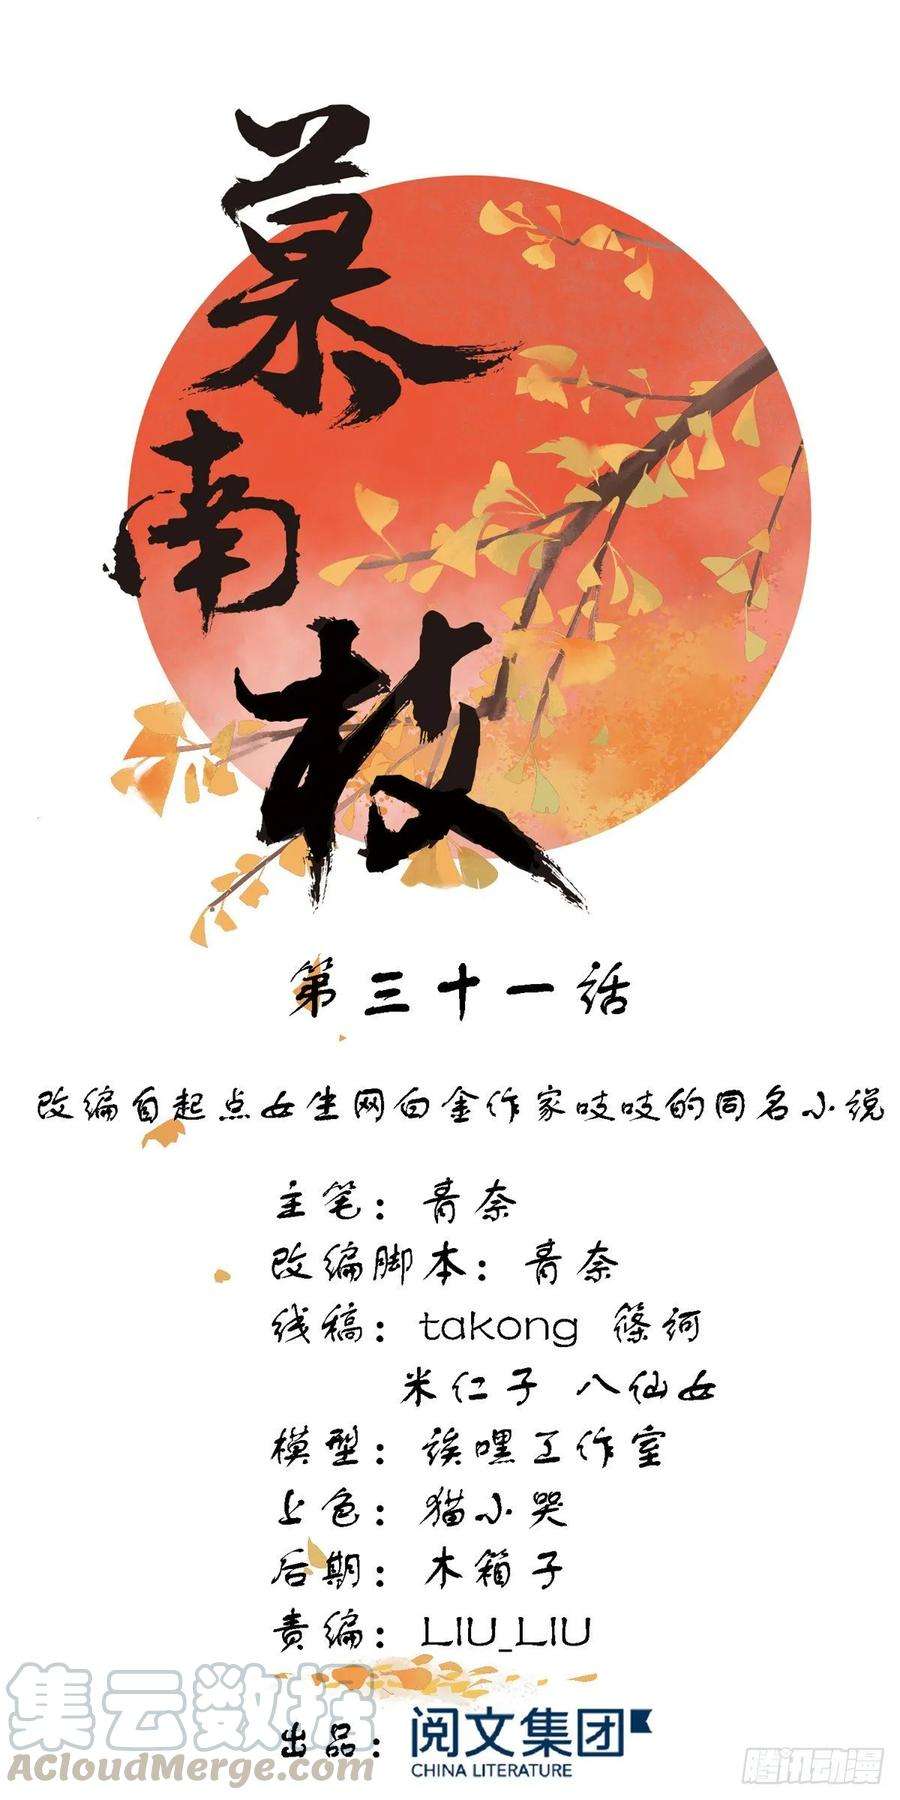 慕南枝
第三十一话
改编自起点女生网白金作家吱吱的同名小说
主笔：青奈
改编脚本：青奈
线稿：takong 篠河
米仁子 八仙女
模型：诶嘿工作室
上色：猫小哭
后期：木箱子
责编：LIU_LIU
集云数据
ACloudMerge.com
出品：阅文集团
CHINA LITERATURE
腾讯动漫